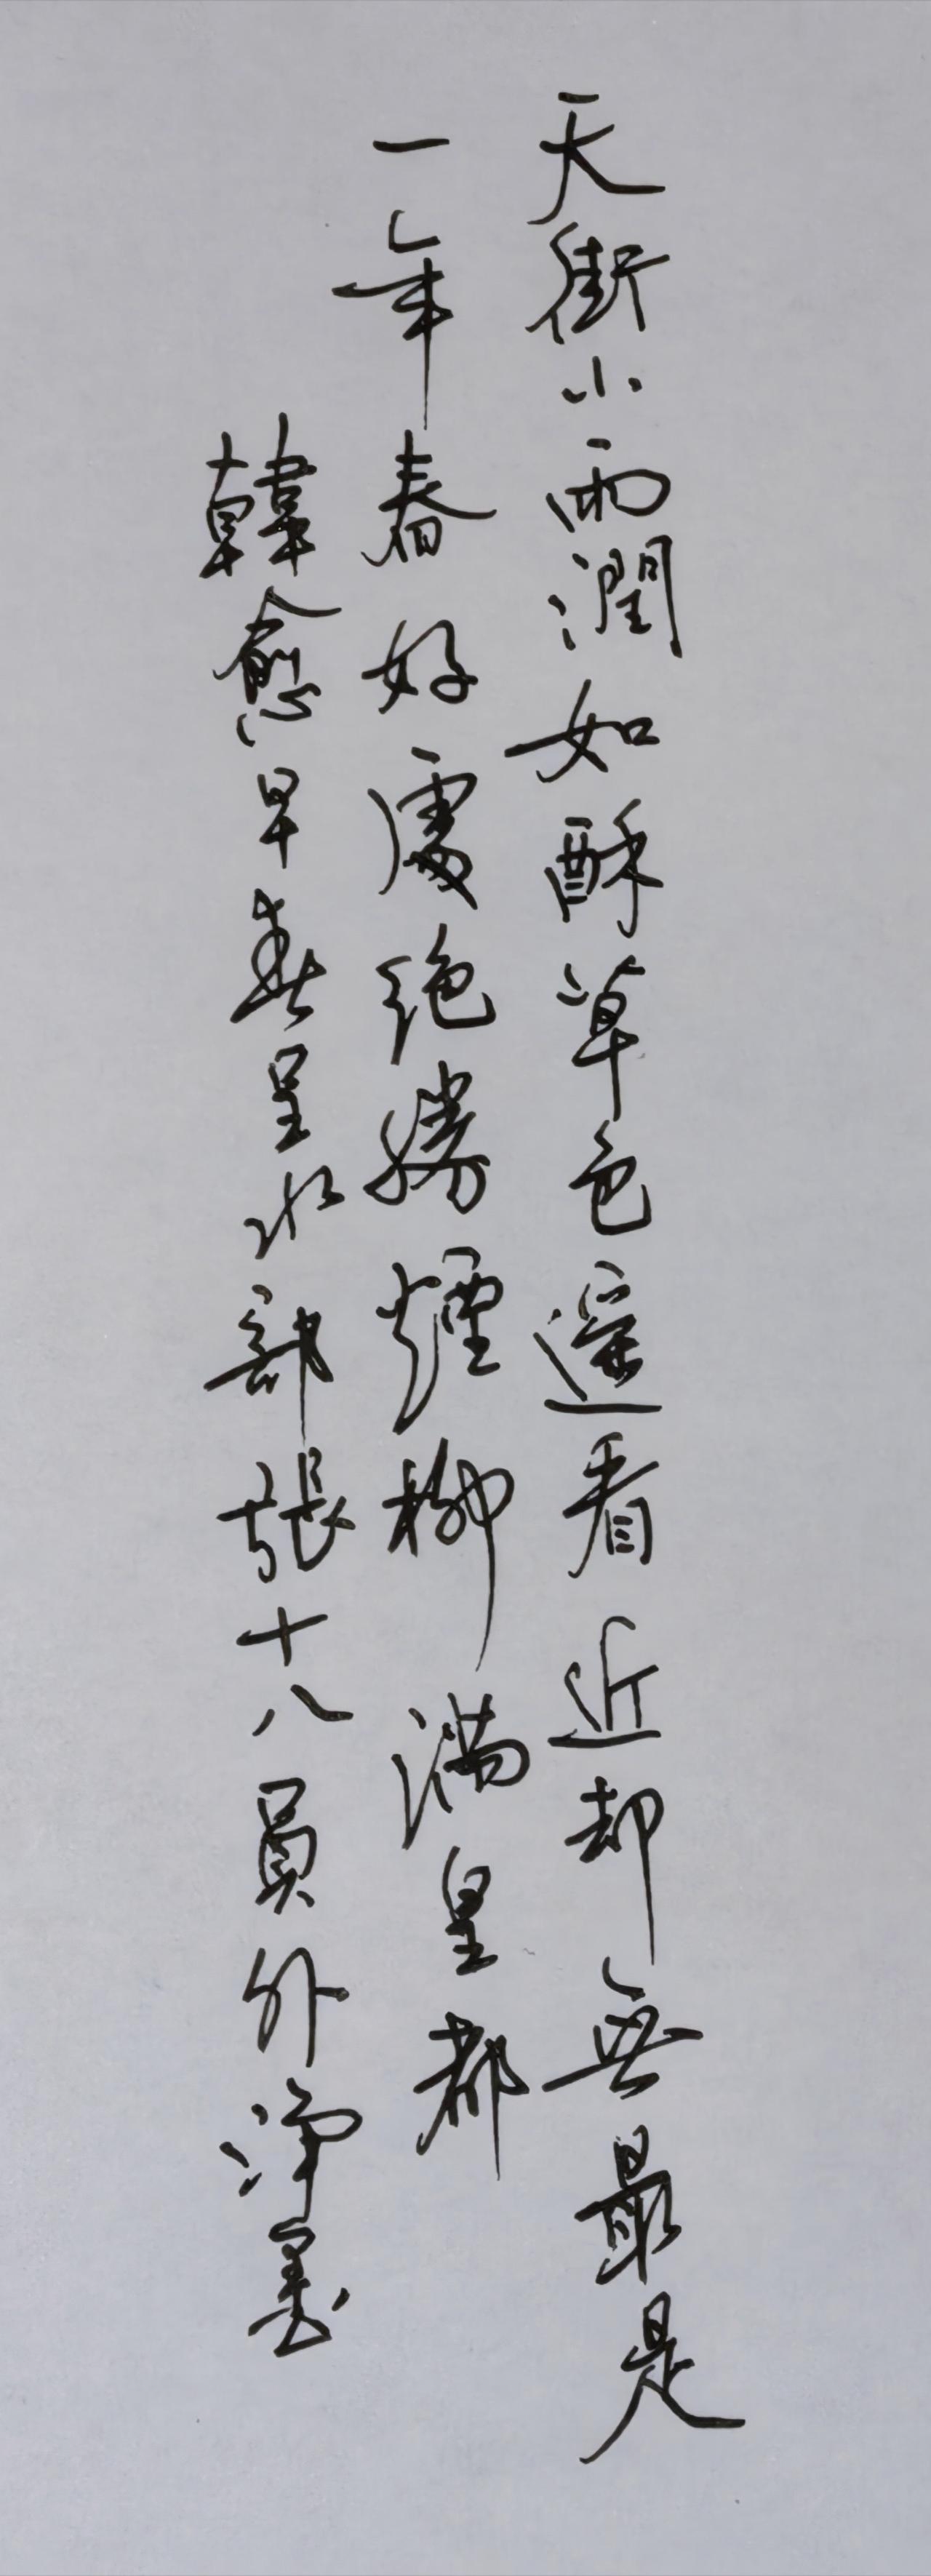 天街小雨潤如酥草色遥看近却無最是
一年春好處绝勝煙柳满皇都
韓愈早春呈水部張十八員外净墨